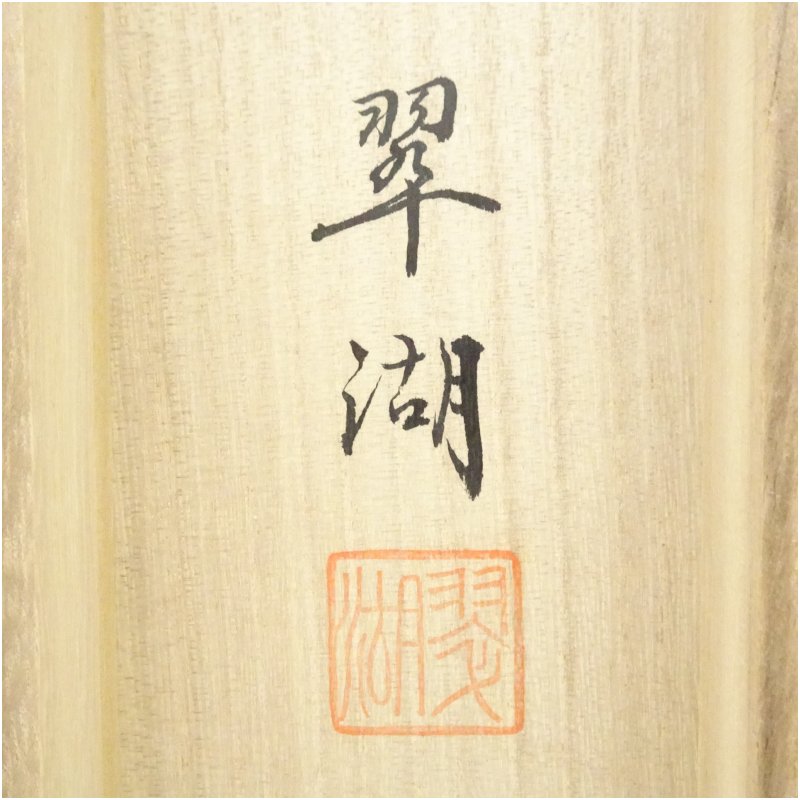 翠湖
翠湖